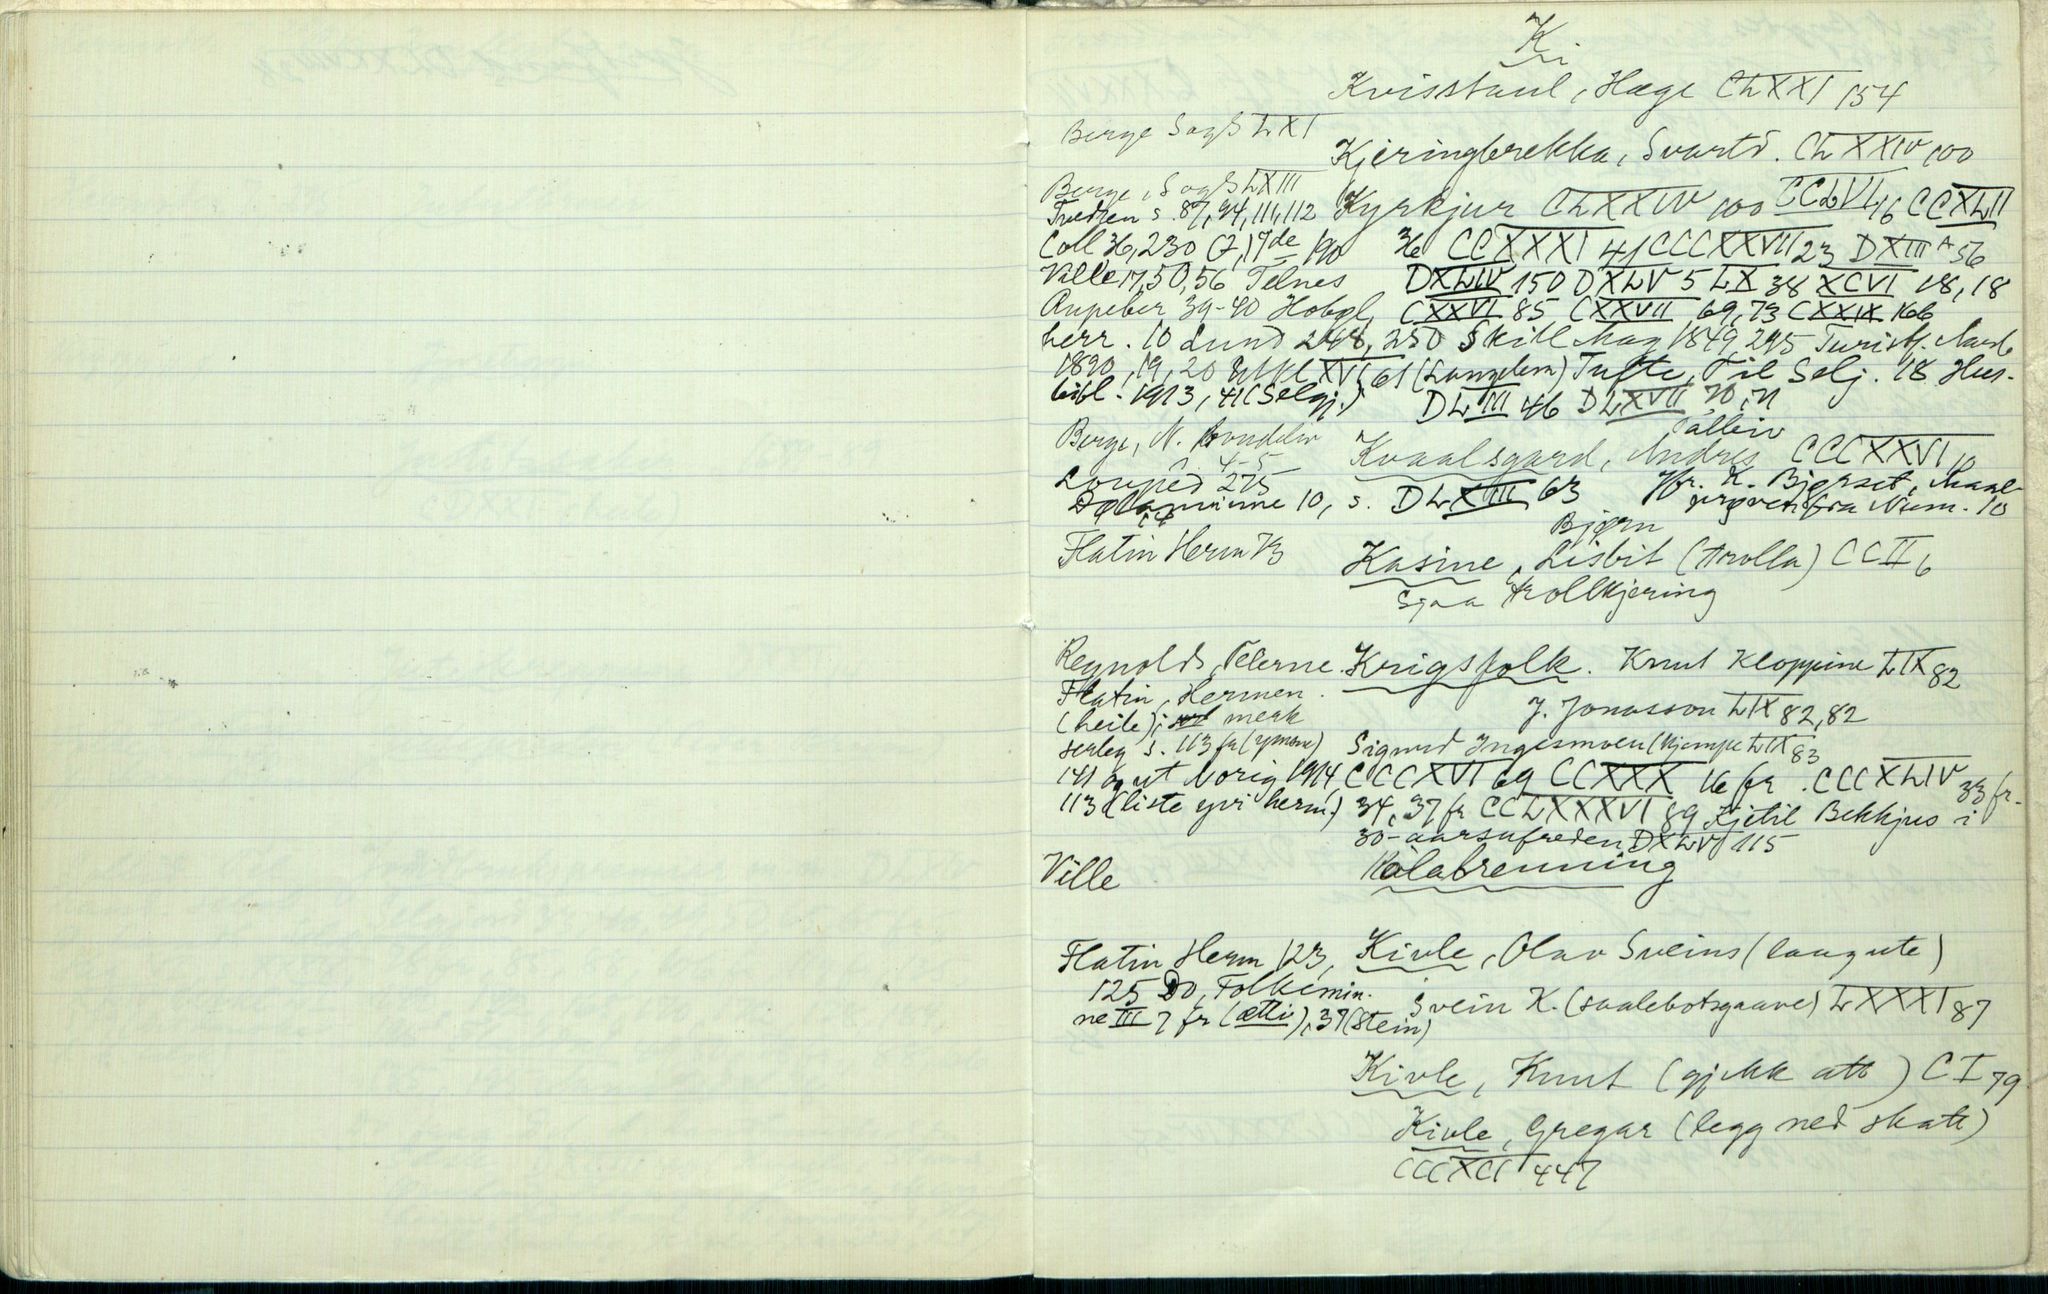 K.
Kvisstaul, Hæge CLXXI 154
Berge Sogh LXI
Kjeringbrekka, Svartd. CLXXIV 100
Berge, Sogh LXIII
Tvedten s. 87, 94, 111, 112 Kyrkjur CLXXIV 100 CCLVI 16 CCXLII
Coll 36, 230 (7, 17de 190 36 CCXXXI 41 CCCXXVII 23 DXIII A 56
Ville 17, 50, 56 Telnes DXLIV 150 DXLV 5 LX 38 XCVI 18, 18
39-40 CXXVI 85 CXXVII 69, 73 CXXIX 166
herr. 10 Lund 248, 250 Skill Mag 1849 295 Turistf. Aarb
1890, 19, 20 XVI 61 (Langlem) Tufte, Fil Selj. 18 Hus-
bibl. 1913, 41 (Selgj.) DLIII 46 DLXVII 70, 71
Berge, N. Brudelin
4-5
Kvaalsgard, Andres CCCXXVI 10
275
10, s. DLXVIII 63 Jfr. K. Bjørset, Maal-
prøven fra Num. 10
Bjørn
Flatin Herm 73 Kasine, Lisbit (trolla) CCII 6
Sjaa trollkjering
Reynolds, Telerne. Krigsfolk. Knut Kloppine LIX 82
Flatin, Hermen.
J. Jonasson LIX 82, 82
(heile); merk
serleg s. 113 fr Sigurd Ingesmoen (kjempe LIX 83
141 og ut Norig 1914, CCCXVI 69 CCXXX 16 fr. CCCXLIV 33 fr.
113 (liste yvi herm.) 34, 37 fr CCLXXXVI 89 Kjetil Bekkjus i
30-aarsufreden DXLVI 115
Ville Kolabrenning
Flatin Herm 123, Kivle, Olav Sveins (langute)
125 Do, Folkemin-
ne III 7 fr (ætti), 37 (stein) Svein K. (saalebotsgaave) LXXXI 87
Kivle, Knut (gjekk att) CI 79
Kivle, Gregar (legg ned skatt)
CCCXCI 447